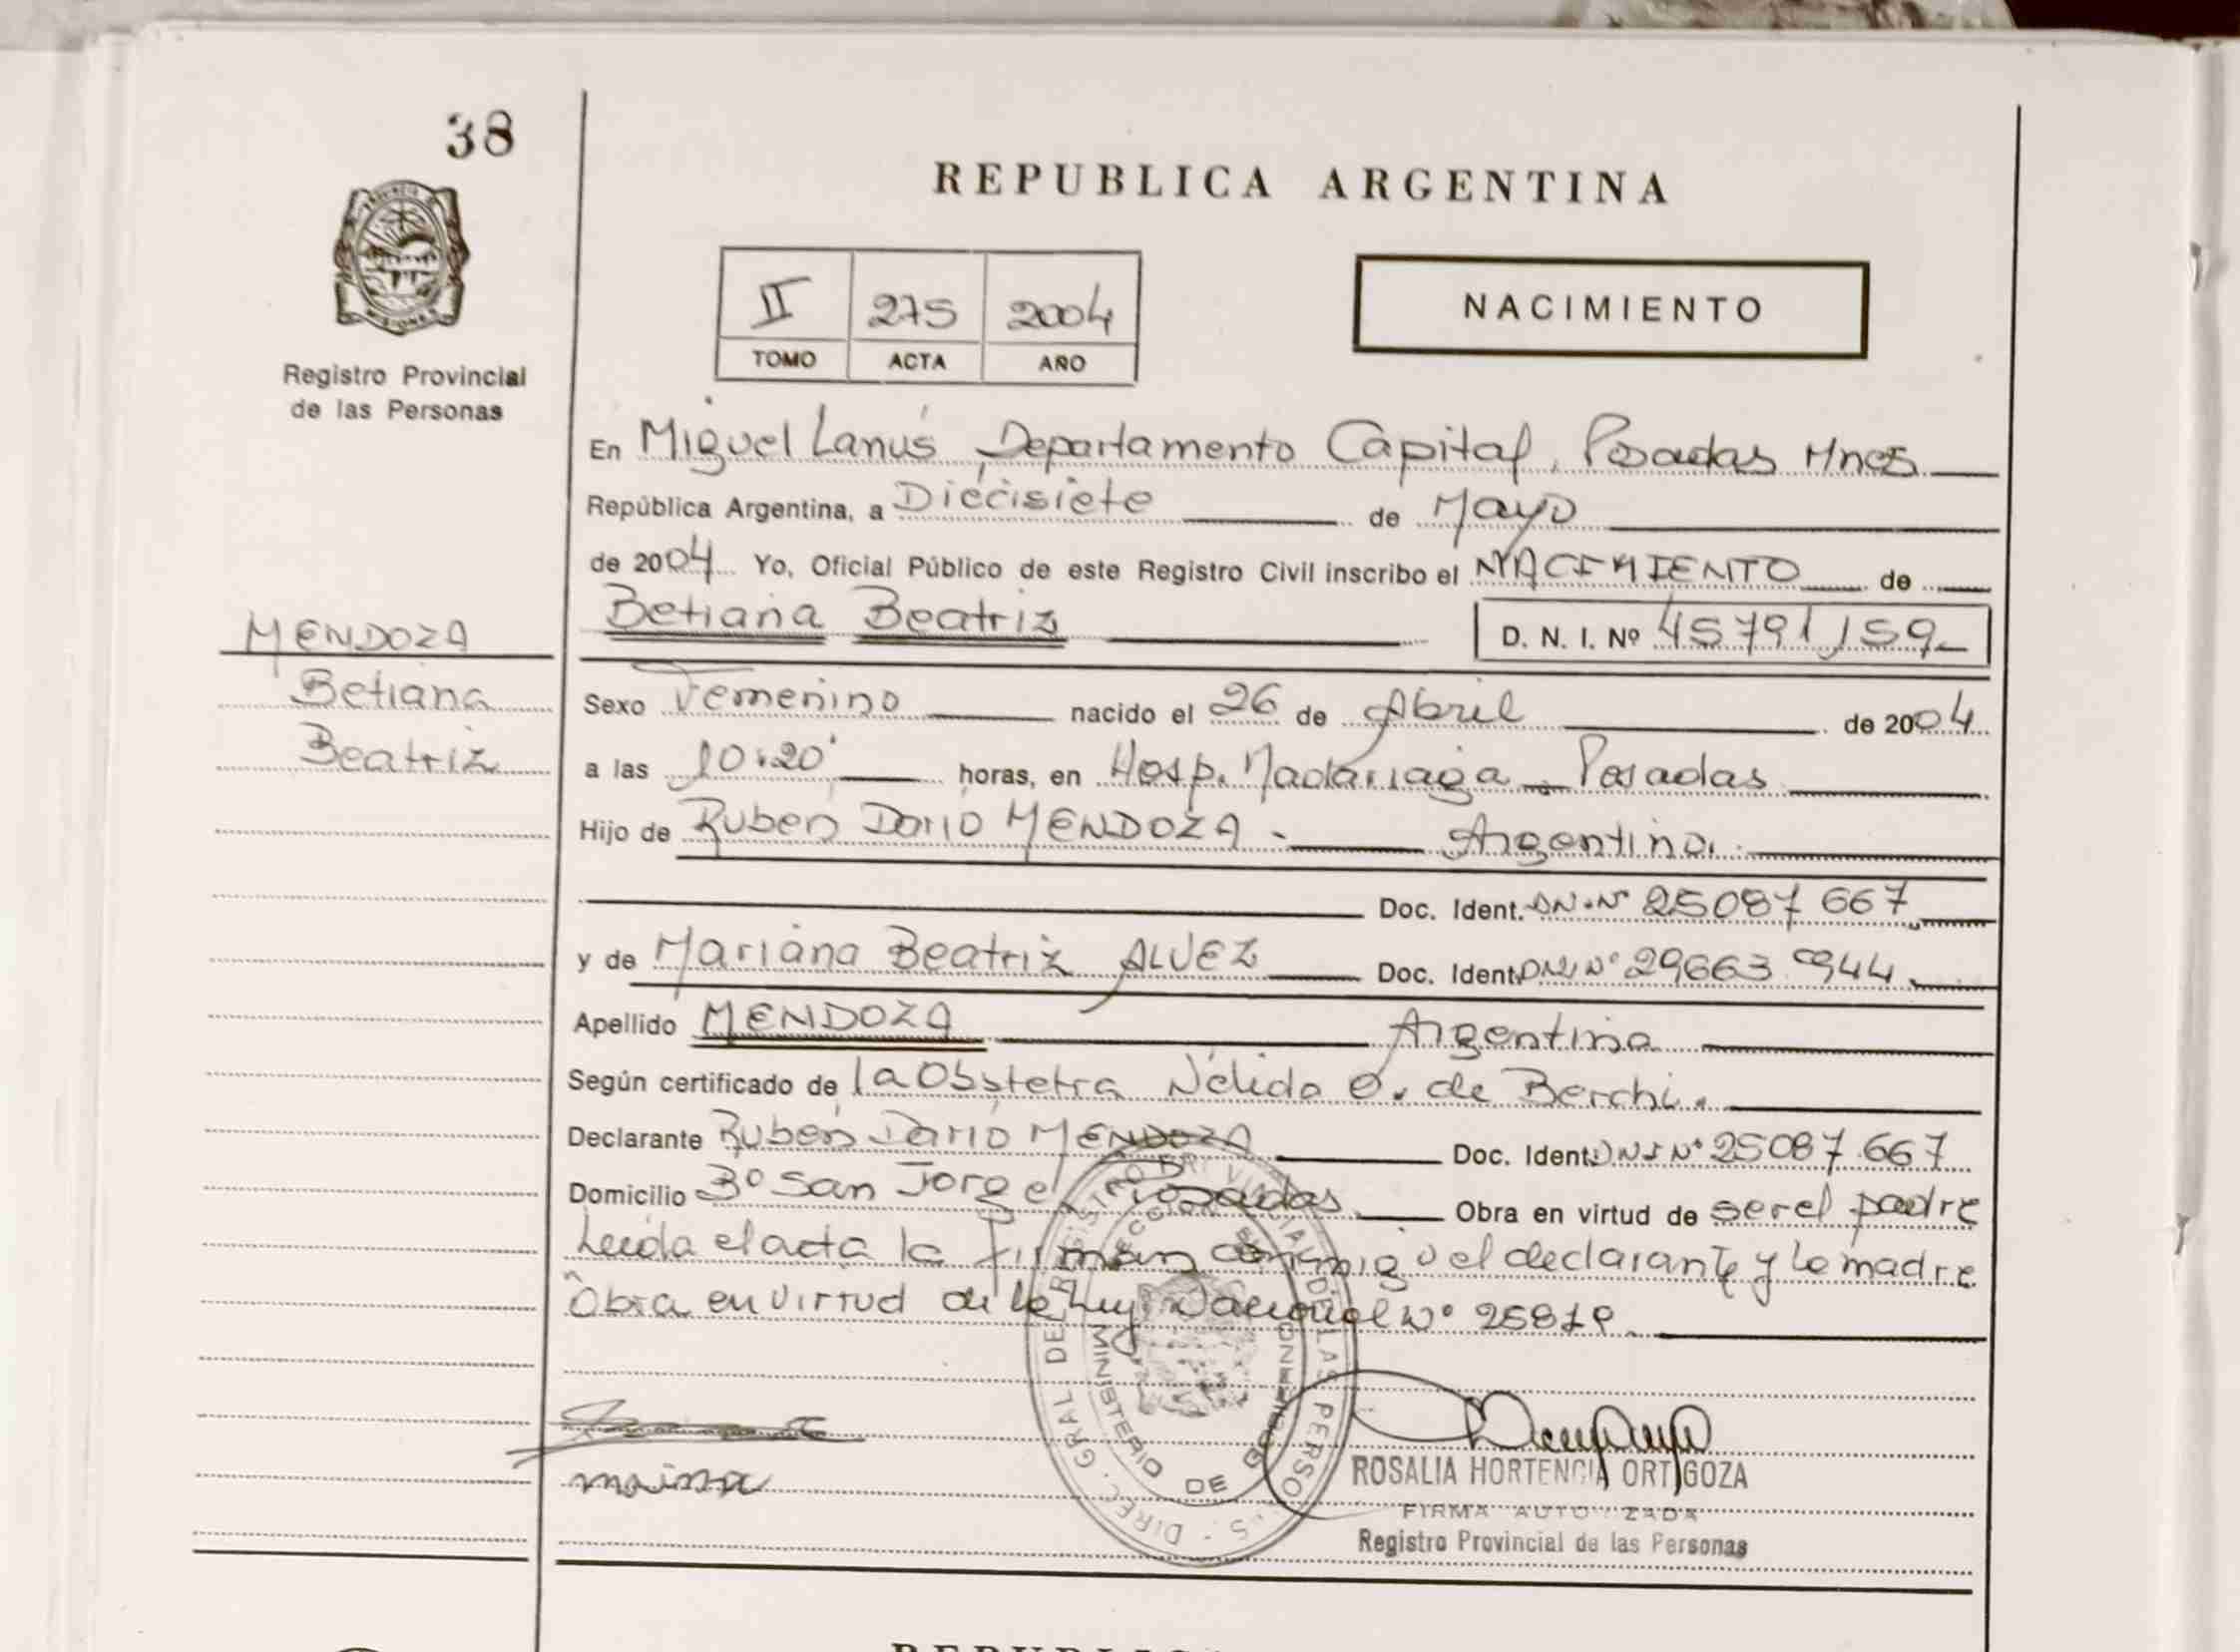 38
REPUBLICA ARGENTINA
PROVINCIA DE
MISIONES
Registro Provincial
de las Personas
II 275 2004
TOMO ACTA AÑO
NACIMIENTO
En Miguel Lanús, Departamento Capital, Posadas Mnes
República Argentina, a Diecisiete de Mayo
de 2004 Yo, Oficial Público de este Registro Civil inscribo el NACIMIENTO de
Betiana Beatriz D. N. I. Nº 45791159
MENDOZA
Betiana
Beatriz
Sexo Femenino nacido el 26 de Abril de 2004
a las 10:20' horas, en Hosp. Madariaga - Posadas
Hijo de Rubén Dario MENDOZA - Argentino.
Doc. Ident. DN.Nº 25087667
y de Mariana Beatriz ALVEZ Doc. Ident. DNI Nº 29663944
Apellido MENDOZA Argentina
Según certificado de la Obstetra Nélida O. de Berchi.
Declarante Rubén Dario MENDOZA Doc. Ident. DNI Nº 25087667
Domicilio Bº San Jorge Posadas Obra en virtud de ser el padre
Leída el acta la firman conmigo el declarante y la madre
Obra en virtud de la Ley Nacional Nº
DIREC. GRAL DEL REGISTRO PROVINCIAL DE LAS PERSONAS
MINISTERIO DE GOBIERNO
ROSALIA HORTENCIA ORTIGOZA
FIRMA AUTORIZADA
Registro Provincial de las Personas